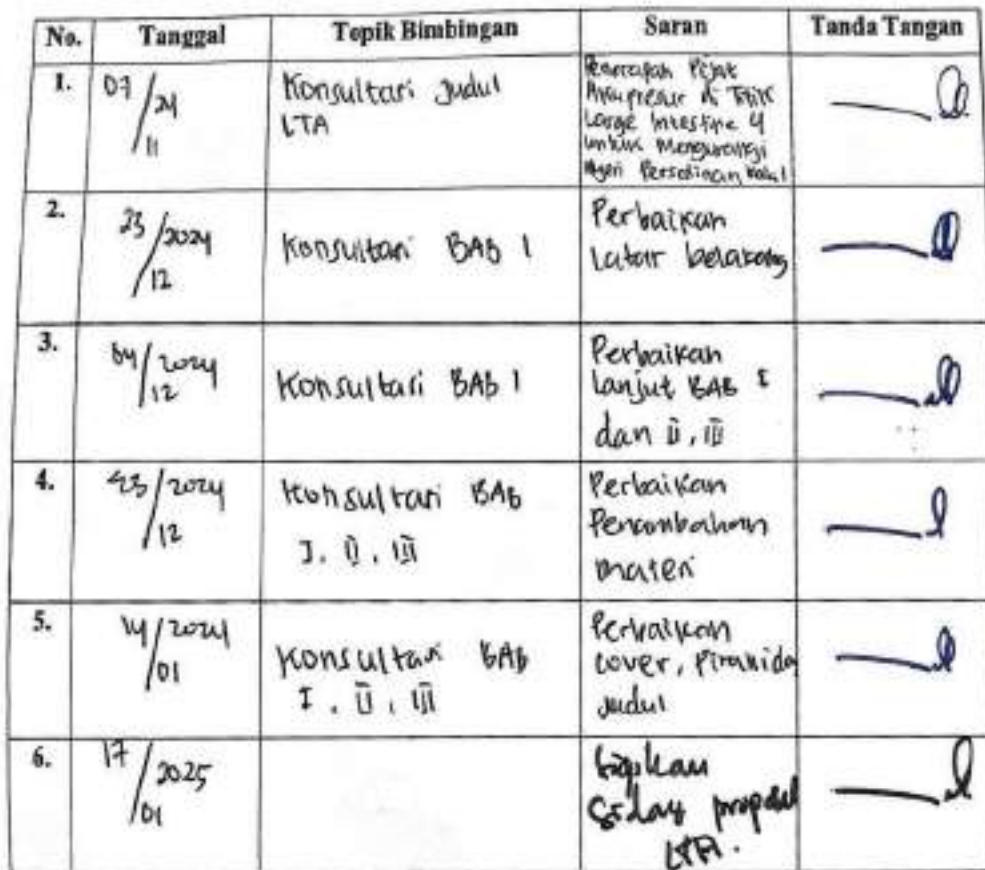 No. Tanggal Topik Bimbingan Saran Tanda Tangan
1. 07/24 11 Konsultasi Judul LTA
Penerapan Pijat
Akupresur di Titik
Large Intestine 4
untuk Mengurangi
Nyeri Persalinan Kala 1
2. 23/2024 12 Konsultasi BAB 1
Perbaikan
latar belakang
3. 04/2024 12 Konsultasi BAB 1
Perbaikan
lanjut BAB I
dan II, III
4. 23/2024 12 Konsultasi BAB
I, II, III
Perbaikan
Penambahan
materi
5. 14/2024 01 Konsultasi BAB
I, II, III
Perbaikan
cover, Piramida
judul
6. 17/2025 01
Siapkan
Sidang proposal
LTA.